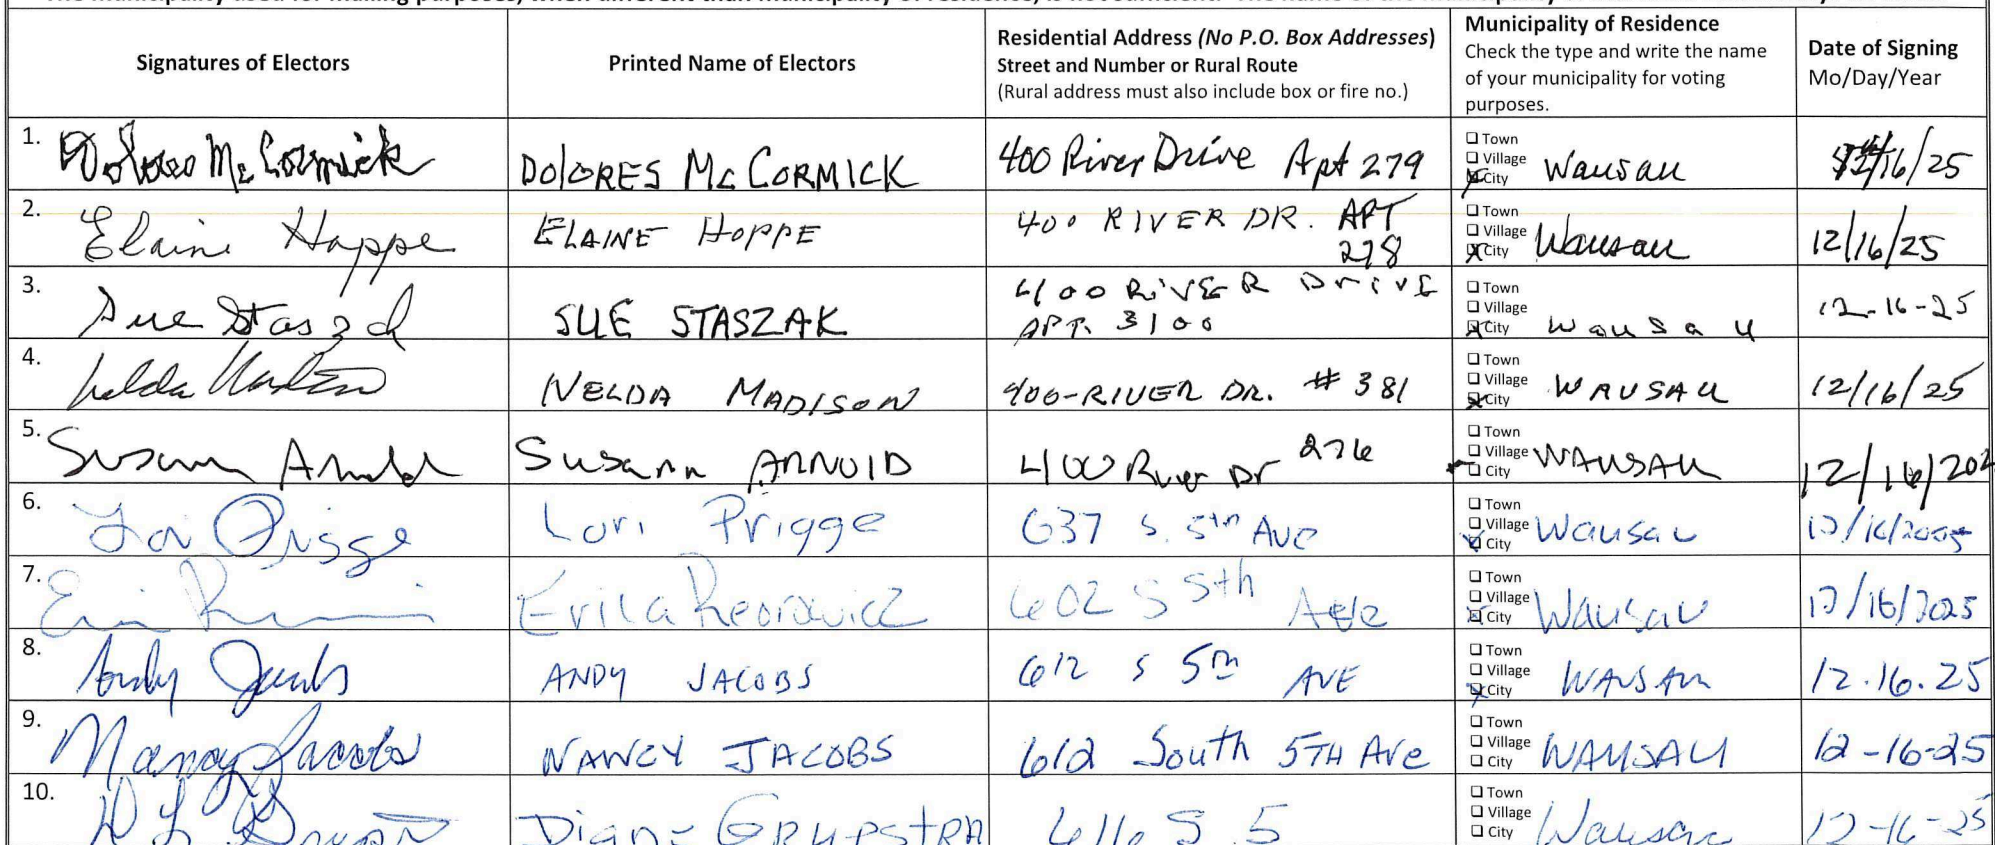 Signatures of Electors
Printed Name of Electors
Residential Address (No P.O. Box Addresses)
Street and Number or Rural Route
(Rural address must also include box or fire no.)
Municipality of Residence
Check the type and write the name
of your municipality for voting
purposes.
Date of Signing
Mo/Day/Year
1. Dolores McCormick DOLORES McCORMICK 400 River Drive Apt 279 Town Village City Wausau 12/16/25
2. Elaine Hoppe ELAINE HOPPE 400 RIVER DR. APT 278 Town Village City Wausau 12/16/25
3. Sue Staszak SUE STASZAK 400 RiVER DrivE APT. 3100 Town Village City Wausau 12-16-25
4. Nelda Madison NELDA MADISON 400-RIVER DR. # 381 Town Village City WAUSAU 12/16/25
5. Susann Arnold Susann ARNOlD 400 River Dr 276 Town Village City WAUSAU 12/16/202
6. Lori Prigge Lori Prigge 637 S. 5th Ave Town Village City Wausau 12/16/2025
7. Erica 602 S 5th Ave Town Village City Wausau 12/16/2025
8. Andy Jacobs ANDY JACOBS 612 S 5th AVE Town Village City WAUSAU 12.16.25
9. Nancy Jacobs NANCY JACOBS 612 South 5TH Ave Town Village City WAUSAU 12-16-25
10. Diane GRYPSTRA 616 S. 5 Town Village City Wausau 12-16-25